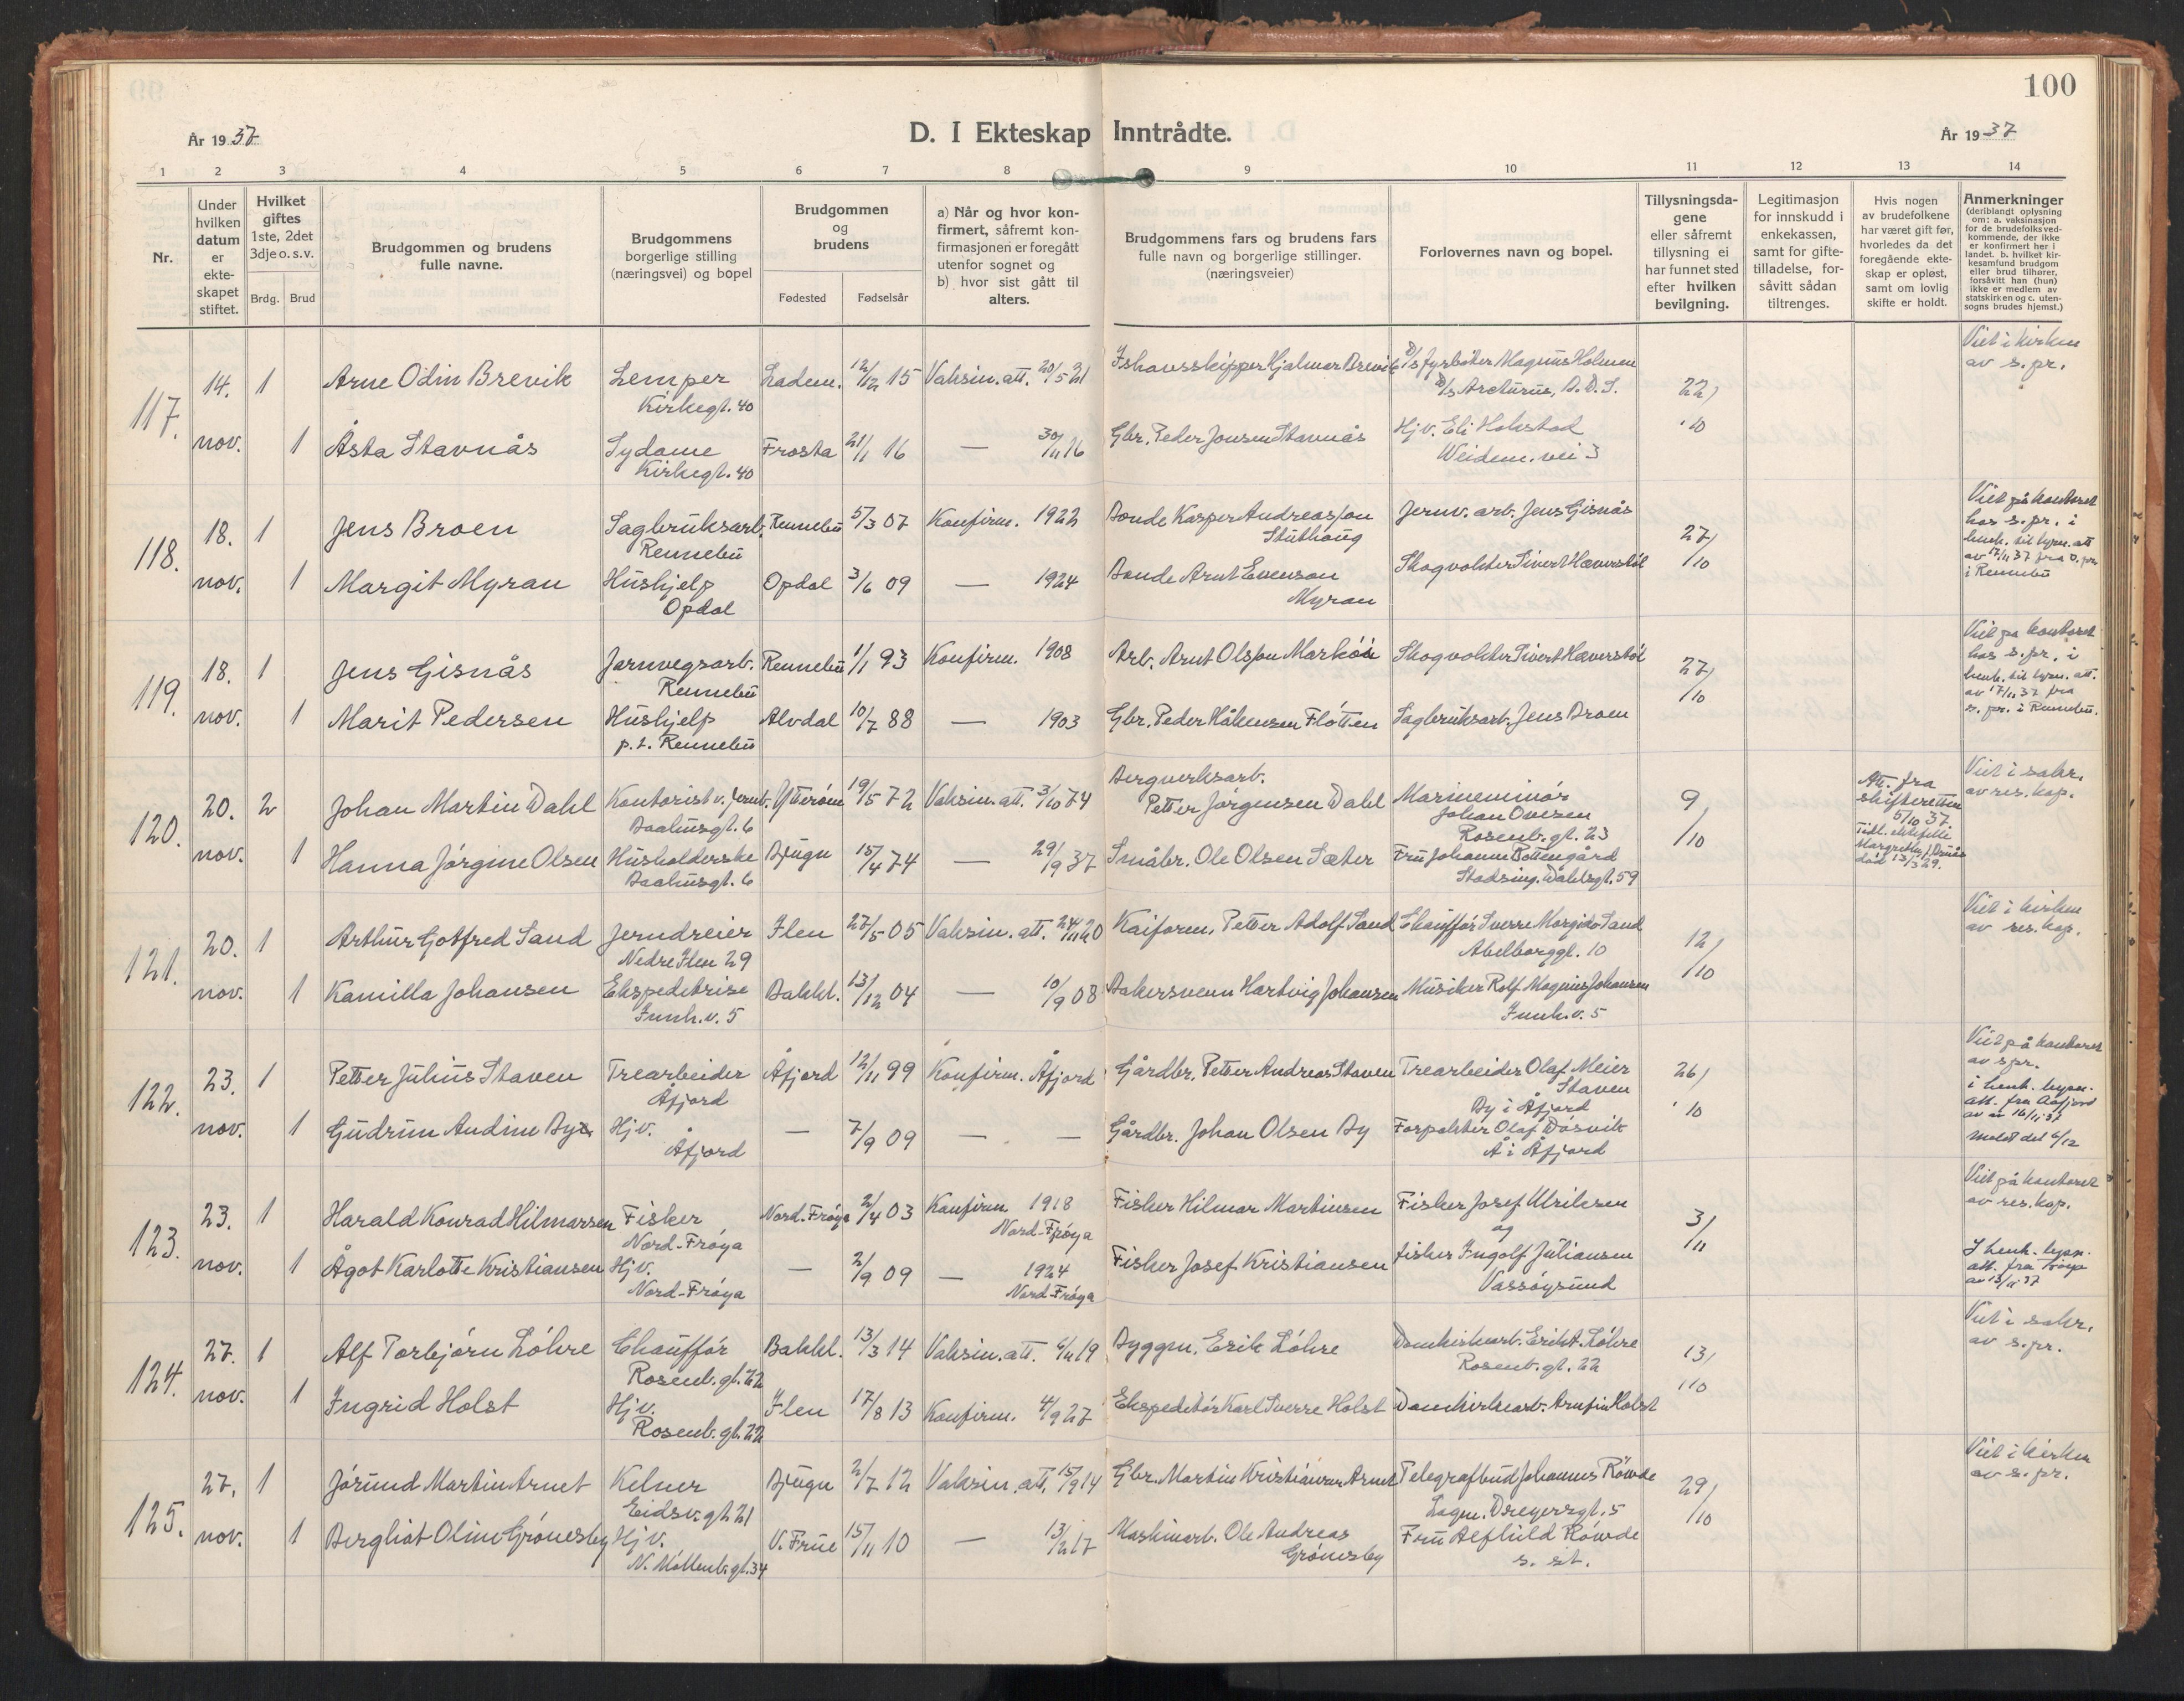 100
År 1937
D. I Ekteskap Inntrådte.
År 1937
1 2 3 4 5 6 7 8 9 10 11 12 13 14
Nr.
Under hvilken datum er ekteskapet stiftet.
Hvilket giftes 1ste, 2det 3dje o. s. v.
Brdg. Brud
Brudgommen og brudens fulle navne.
Brudgommens borgerlige stilling (næringsvei) og bopel
Brudgommen og brudens
Fødested Fødselsår
a) Når og hvor konfirmert, såfremt konfirmasjonen er foregått utenfor sognet og
b) hvor sist gått til alters.
Brudgommens fars og brudens fars fulle navn og borgerlige stillinger. (næringsveier)
Forlovernes navn og bopel.
Tillysningsdagene eller såfremt tillysning ei har funnet sted efter hvilken bevilgning.
Legitimasjon for innskudd i enkekassen, samt for giftetilladelse, forsåvitt sådan tiltrenges.
Hvis nogen av brudefolkene har været gift før, hvorledes da det foregående ekteskap er opløst, samt om lovlig skifte er holdt.
Anmerkninger (deriblandt oplysning om: a. vaksinasjon for de brudefolksvedkommende, der ikke er konfirmert her i landet. b. hvilket kirkesamfund brudgom eller brud tilhører, forsåvitt han (hun) ikke er medlem av statskirken og c. utensogns brudes hjemst.)
117. 14. nov. 1 Arne Odin Brevik Lemper Kirkegt. 40 Ladem. 12/12 15 Vaksin. att. 20/5 21 Ishavsskipper Hjalmar Brevik D/s fyrbøter Magnus Holmen D/s Arcturus, B.D.S. 22/10 Viet i kirken av s. pr.
1 Åsta Stavnås Sydame Kirkegt. 40 Frosta 21/1 16 — 30/11 16 Gbr. Peder Jonsen Stavnås Hjv. Eli Hokstad Weidem. vei 3
118. 18. nov. 1 Jens Broen Sagbruksarb. Rennebu Rennebu 5/3 07 Konfirm. 1922 Bonde Kasper Andreasson Stuthaug Jernv. arb. Jens Gisnås 27/10 Viet på kontoret hos s. pr. i henh. til lysn. att av 17/11 37 fra s. pr. i Rennebu
1 Margit Myran Hushjelp Opdal Opdal 3/6 09 — 1924 Bonde Arnt Evenson Myran Skogvokter Sivert Hæverstøl
119. 18. nov. 1 Jens Gisnås Jernvegsarb. Rennebu Rennebu 1/1 93 Konfirm. 1908 Arb. Arnt Olsson Skogvokter Sivert Hæverstøl 27/10 Viet på kontoret hos s. pr. i henh. til lysn. att. av 17/11 37 fra s. pr. i Rennebu.
1 Marit Pedersen Hushjelp p.t. Rennebu Alvdal 10/7 88 — 1903 Gbr. Peder Håkensen Fløtten Sagbruksarb. Jens Broen
120. 20. nov. 2 Johan Martin Dahl Kontorist v. Jernb. Baahusgt. 6 Ytterøen 19/5 72 Vaksin. att. 3/10 74 Bergverksarb. Petter Jørgensen Dahl Marineminør Johan Ovesen Rosenb. gt. 23 9/10 Att. fra skifteretten 5/10 37. Tidl. ektefelle død 13/3 29. Viet i sakr. av res. kap.
1 Hanna Jørgine Olsen Husholderske Baahusgt. 6 Bjugn 15/4 74 — 29/9 37 Småbr. Ole Olsen Sæter Fru Johanne Rottengård Stadsing. Dahlsgt. 59
121. 20. nov. 1 Arthur Gotfred Sand Jerndreier Nedre Ilen 29 Ilen 27/5 05 Vaksin. att. 24/11 20 Kaiform. Petter Adolf Sand Chauffør Sverre Sand Abelborggt. 10 12/10 Viet i kirken av res. kap.
1 Kamilla Johansen Ekspeditrise Innh. v. 5 Bakkl. 13/12 04 — 10/9 08 Bakersvenn Hartvig Johansen Musiker Rolf Magnus Johansen Innh. v. 5
122. 23. nov. 1 Petter Julius Staven Trearbeider Åfjord Åfjord 12/11 99 Konfirm. Åfjord Gårdbr. Petter Andreas Staven Trearbeider Olaf Meier Staven By i Åfjord 26/10 Viet på kontoret av s pr. i henh. lysn. att. fra Aafjord av 16/11 37 Meldt del 6/12
1 Gudrun Audine By Hjv. Åfjord — 7/9 09 — — Gårdbr. Johan Olsen By Forpakter Olaf Døsvik Å i Åfjord
123. 23. nov. 1 Harald Konrad Hilmarsen Fisker Nord-Frøya Nord-Frøya 2/4 03 Konfirm. 1918 Nord-Frøya Fisker Hilmar Martinsen Fisker Josef Ulriksen og 3/11 Viet på kontoret av res. kap.
1 Ågot Karlotte Kristiansen Hjv. Nord-Frøya — 2/9 09 — 1924 Nord-Frøya Fisker Josef Kristiansen fisker Ingolf Juliansen Vassøysund I henh. lysn. att. fra Frøya av 13/11 37
124. 27. nov. 1 Alf Torbjørn Løhre Chauffør Rosenb. gt. 22 Bakkl. 13/3 14 Vaksin. att. 6/11 19 Byggm. Erik Løhre Domkirkearb. Erik Løhre Rosenb. gt. 22 13/10 Viet i sakr. av s. pr.
1 Ingrid Holst Hjv. Rosenb. gt. 22 Ilen 17/8 13 Konfirm. 4/9 27 Ekspeditør Karl Sverre Holst Domkirkearb. Arnfin Holst
125. 27. nov. 1 Jørund Martin Arnet Kelner Eidsv. gt. 21 Bjugn 2/7 12 Vaksin. att. 15/9 14 Gbr. Martin Kristiansen Arnet Telegrafbud Johannes Røvde Lagm. Dreyersgt. 5 29/10 Viet i kirken av s. pr.
1 Bergliot Oline Grønesby Hjv. N. Møllenb. gt. 34 V. Frue 15/11 10 — 13/2 17 Maskinarb. Ole Andreas Grønesby Fru Alfhild Røvde s. st.